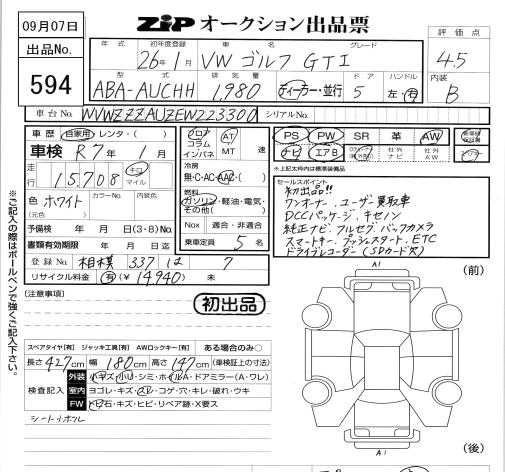 09月07日
出品No.
594
ZiP オークション出品票
年式 初年度登録 車名 グレード
26年1月 VW ゴルフ GTI
型式 排気量 ドア ハンドル
ABA-AUCHH 1,980 ディーラー・並行 5 左・右
評価点
4.5
内装
B
車台No. WVWZZZAUZEW223300 シリアルNo.
車歴 自家用・レンタ・( )
車検 R7年1月
走行 15,708 キロ マイル
色 ホワイト カラーNo. 内装色
(元色)
予備検 年 月 日(3・8)No.
書類有効期限 年 月 日迄
登録No. 相模 337 は 7
リサイクル料金 有(¥14,940) 未
フロア コラム インパネ AT MT 速
冷房
無・C・AC・AAC・( )
燃料
ガソリン・軽油・電気・その他( )
Nox 適合・非適合
乗車定員 5 名
PS PW SR 革 AW
ナビ エアB 社外ナビ 社外AW
※上記太枠内は標準装備品
セールスポイント
初出品!!
ワンオーナー、ユーザー買取車
DCCパッケージ、キセノン
純正ナビ、フルセグ、バックカメラ
スマートキー、プッシュスタート、ETC
ドライブレコーダー(SDカード欠)
※ご記入の際はボールペンで強くご記入下さい。
[注意事項]
初出品
スペアタイヤ[有] ジャッキ工具[有] AWロックキー[有] ある場合のみ○
長さ 427cm 幅 180cm 高さ 147cm (車検証上の寸法)
検査記入
外装 小キズ・小U・シミ・ホイルA・ドアミラー(A・ワレ)
室内 ヨゴレ・キズ・スレ・コゲ・穴・キレ・破れ・ウキ
FW トビ石・キズ・ヒビ・リペア跡・X要ス
シート小ホール
A1
(前)
A1
(後)